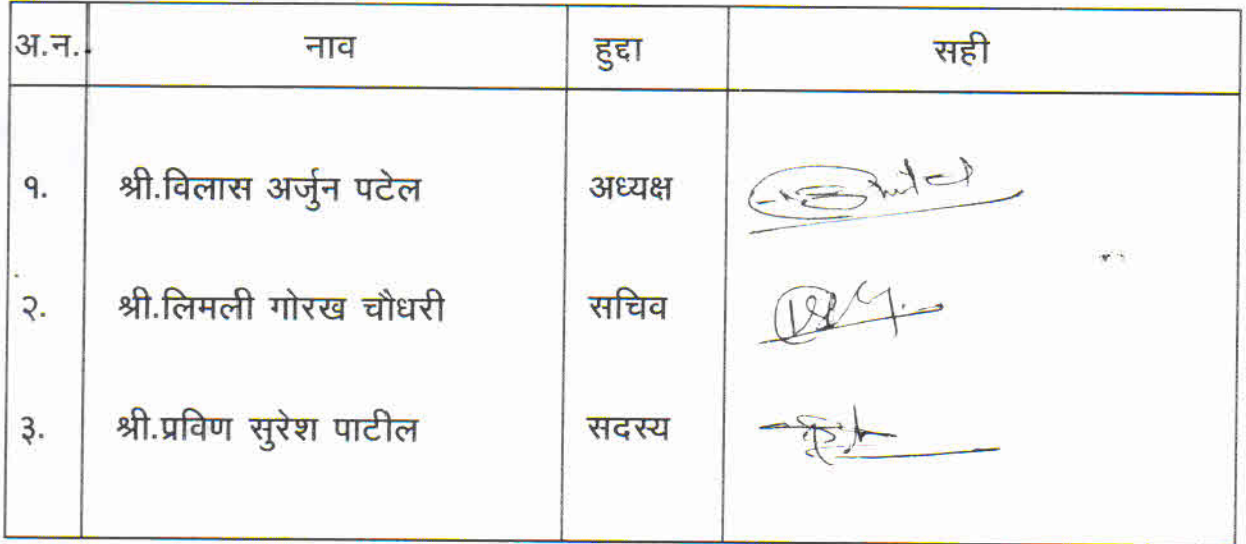 अ.न. नाव हुद्दा सही
१. श्री.विलास अर्जुन पटेल अध्यक्ष
२. श्री.लिमली गोरख चौधरी सचिव
३. श्री.प्रविण सुरेश पाटील सदस्य